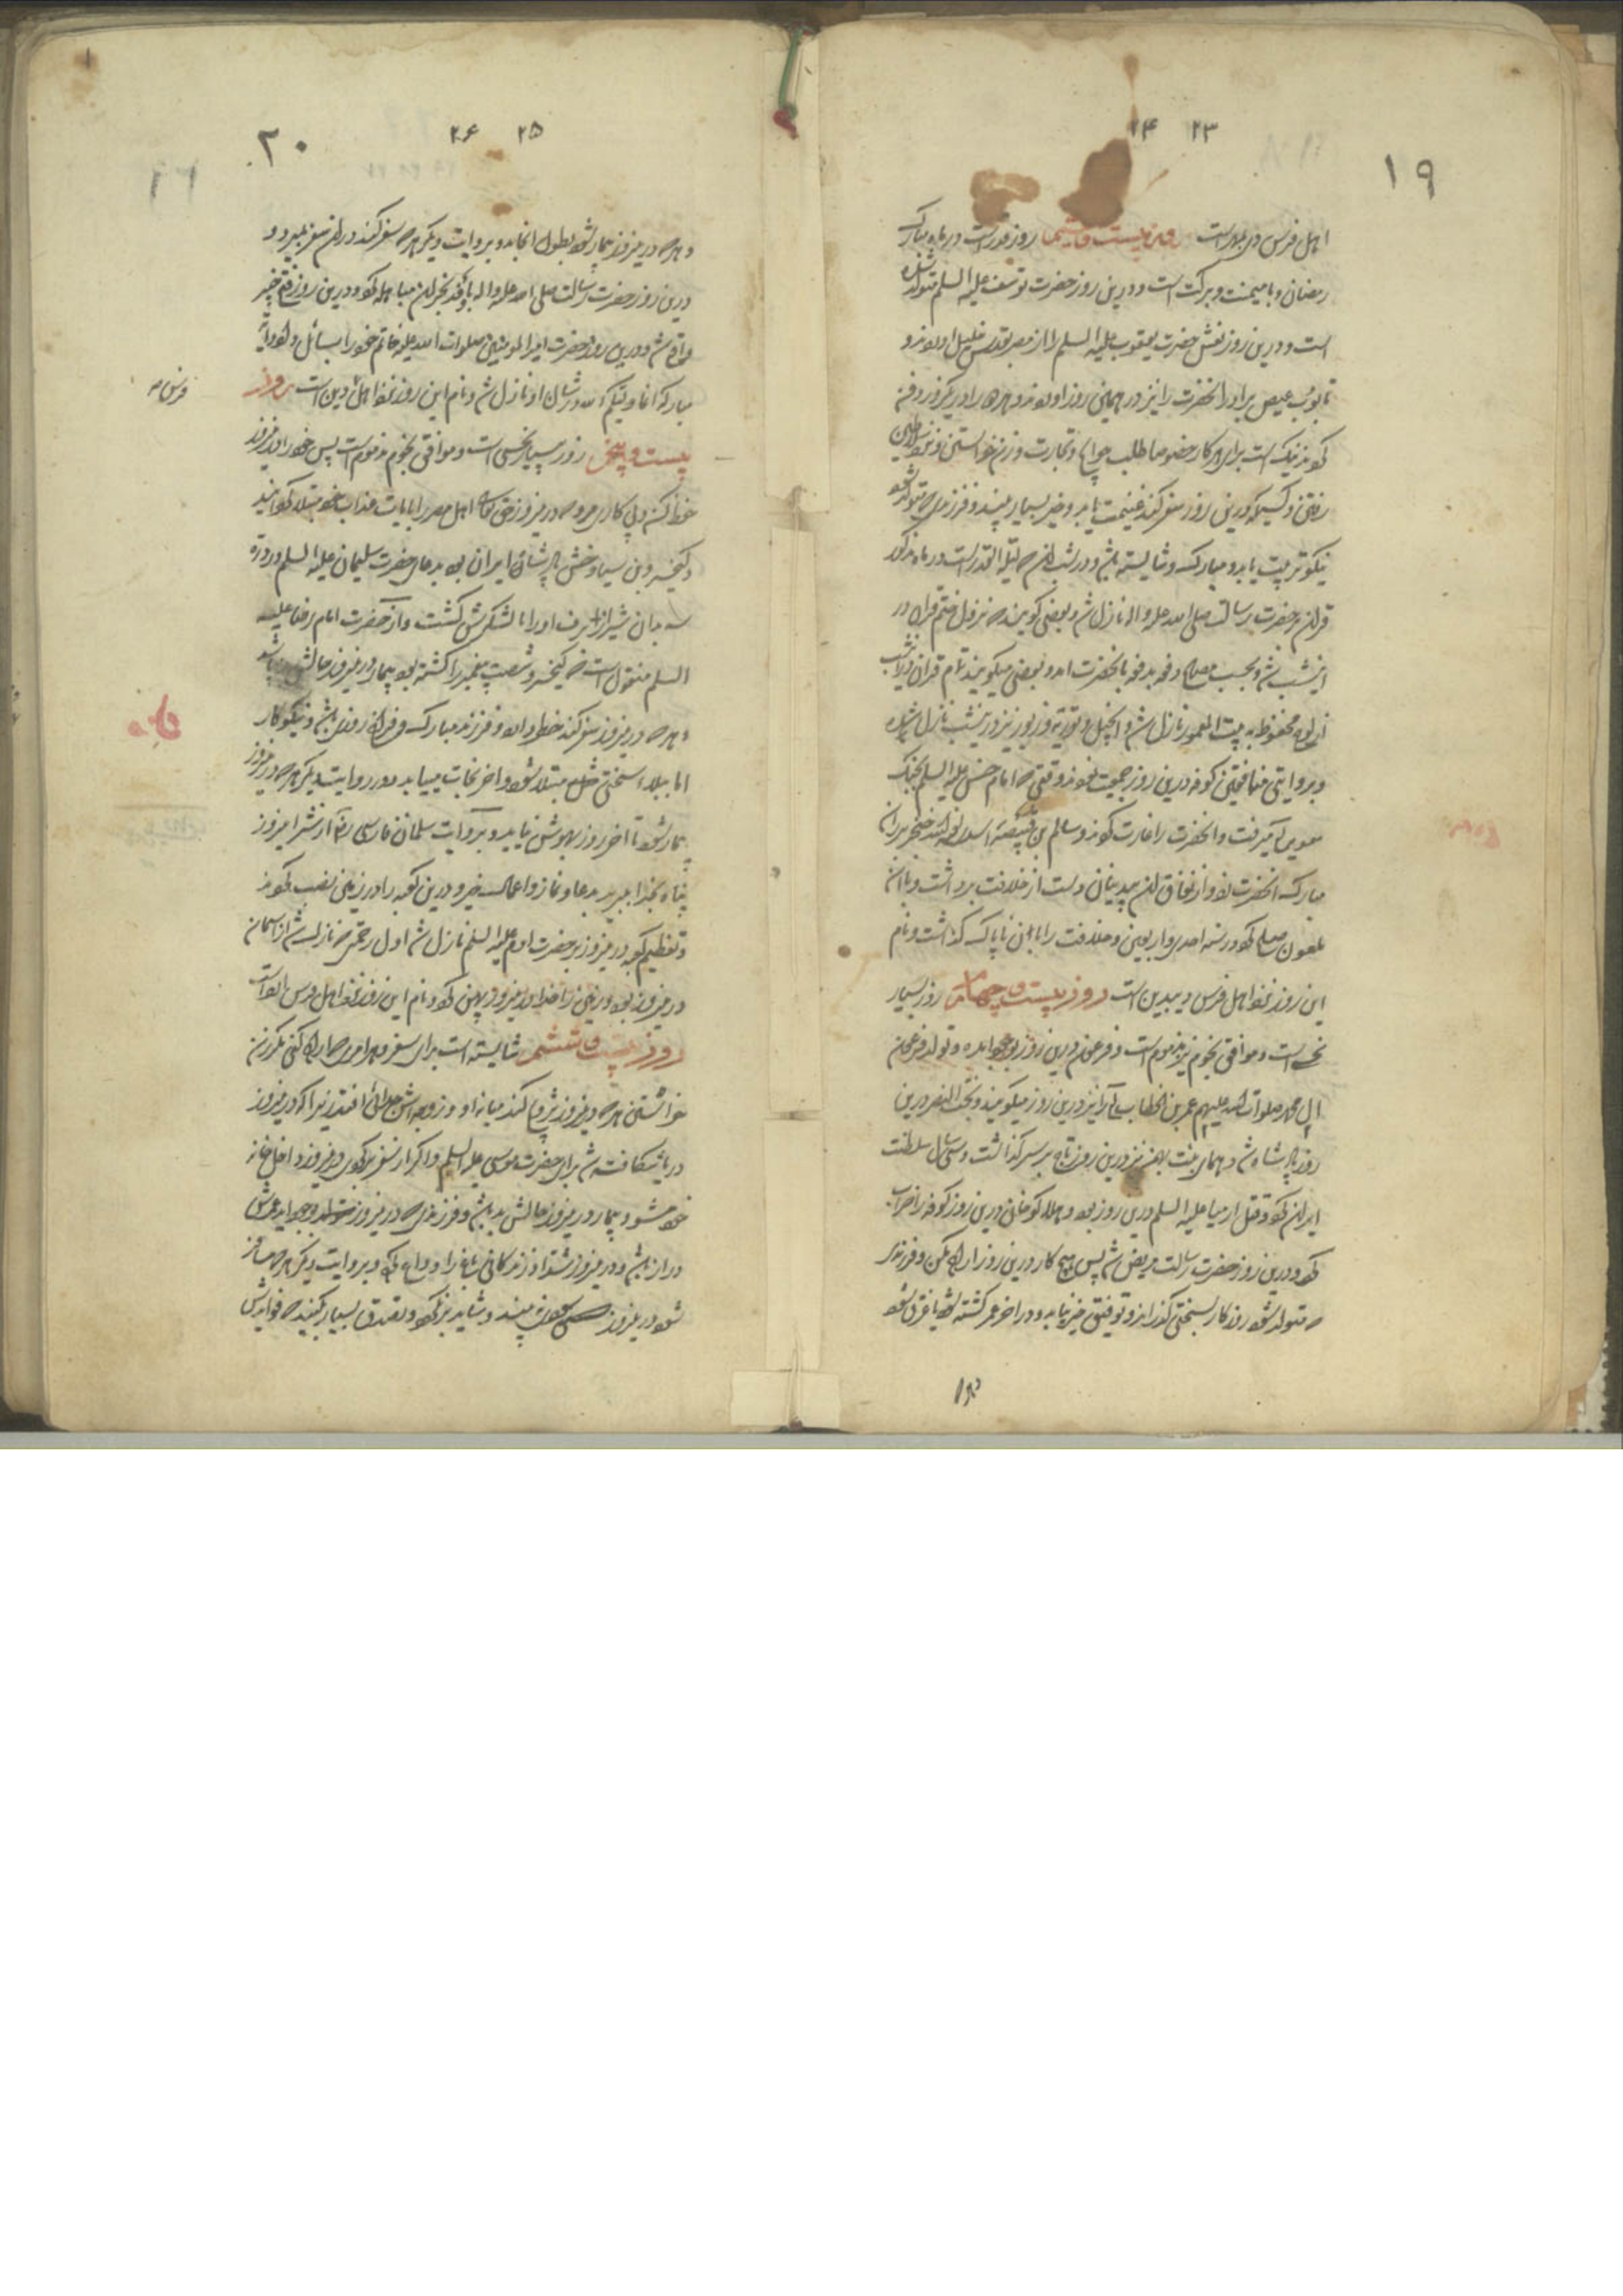 ۲۳ ۲۴
۱۹
اهل فرس است روز بیست و روز قدر است در ماه مبارک
رمضان و با میمنت و برکت است و درین روز حضرت یوسف علیه السلم متولد شده
است و درین روز نعش حضرت یعقوب علیه السلم را از مصر بقدس خلیل آوردند و
تابوت عیص برادر آنحضرت را نیز در همین روز آوردند و هر دو را در یکروز دفن
کردند نیک است برای هر کار خصوصا طلب حوایج و تجارت و زن خواستن و نزد سلاطین
رفتن و کسیکه درین روز سفر کند غنیمت یابد و خیر بسیار بیند و فرزندی که متولد شود
نیکو تربیت یابد و مبارک و شایسته باشد و در شب این لیلة القدر است در ماه مذکور
قرآن بر حضرت رسالت صلی الله علیه و اله نازل شد و بعضی گویند که نزول ختم قرآن در
اینشب شد و بحسب مصالح دفعه بدفعه بانحضرت آمد و بعضی میگویند تمام قرآن درینشب
از لوح محفوظ به بیت المعمور نازل شد و انجیل و توریة و زبور نیز درینشب نازل شده
و بروایتی منافقین کوفه درین روز جمعیت نمودند وقتی که امام حسن علیه السلم بجنگ
معویه میرفت و آنحضرت را غارت کردند و سالم بن خنجر بر ران
مبارک آنحضرت زد و از نفاق آن بیدینان دست از خلافت برداشت و با آن
ملعون صلح کرد در سنه احدی و اربعین و خلافت را با آن ناپاک گذاشت و نام
این روز نزد اهل فرس دیبدین است روز بیست و چهارم روز بسیار
نحس است و موافق نجوم نیز مذموم است و فرعون درین روز بوجود آمده و تولد فرعون
ال محمد صلوات الله علیهم عمر بن الخطاب را نیز درین روز میگویند و بخت النصر درین
روز پادشاه شد و همای بنت بهمن نیز درین روز تاج بر سر گذاشت و سی سال سلطنت
ایران کرد و قتل ارمیا علیه السلم درین روز بود و هلاکو خان درین روز کوفه را خراب
کرد و درین روز حضرت رسالت مریض شد پس هیچ کار درین روز اراده مکن و فرزندی
که متولد شود روزگار بسختی گذراند و توفیق خیر نیابد و در آخر عمر کشته شود یا غرق شود
۲۵ ۲۶
۲۰
و هر که درین روز بیمار شود بطول انجامد و بروایت دیگر هر که سفر کند در آن سفر بمیرد و
درین روز حضرت رسالت صلی الله علیه و اله با وفد نجران مباهله کرد و درین روز فتح خیبر
واقع شد و درین روز حضرت امیر المومنین صلوات الله علیه خاتم خود را بسائل داد و آیة
مبارکه انما ولیکم الله در شأن او نازل شد و نام این روز نزد اهل دین است روز
فرس
بیست و پنجم روز بسیار نحسی است و موافق نجوم مذموم است پس خود را درین روز
حفظ کن و پی کاری مرو که درین روز حق تعالی اهل مصر را بآیات عذاب خود مبتلا گردانید
و کیخسرو بن سیاوخش پادشاه ایران بود بدعای حضرت سلیمان علیه السلم در دره
میان شیراز برف او را با لشکرش کشت و از حضرت امام رضا علیه
السلم منقول است که کیخسرو شصت پیغمبر را کشته بود بیمار درین روز حالش بد باشد
و هر که درین روز سفر کند خطر دارد و فرزند مبارک و فراخ روزی باشد و نیکو کار
اما ببلاء سختی مبتلا شود و آخر نجات مییابد و در روایت دیگر هر که درین روز
بیمار شود تا آخر روز بهوش نیاید و بروایت سلمان فارسی رض از شر امروز
پناه بخدا ببرید بدعا و نماز و اعمال خیر و درین کعبه را در زمین نصب کردند
و تعظیم کعبه درین روز بر حضرت آدم علیه السلم نازل شد اول رحمتی که نازل شد از آسمان
درین روز بود و زمین را خدا درین روز پهن کرد و نام این روز نزد اهل فرس ارد است
روز بیست و ششم شایسته است برای سفر و هر امری که اراده کنی مگر زن
خواستن هر که درین روز تزویج کند میانه او و زوجه اش جدائی افتد زیرا که درین روز
دریا شکافته شد برای حضرت موسی علیه السلم و اگر از سفر برگردی درین روز داخل خانه
خود مشو و بیمار درین روز حالش بد باشد و فرزندی که درین روز بوجود آید عمرش
دراز باشد و درین روز شداد زندگانی را وداع کرد و بروایت دیگر هر که مسافر
شود درین روز بیند و شاید برنگردد و تصدق بسیار بکنید که فوایدش